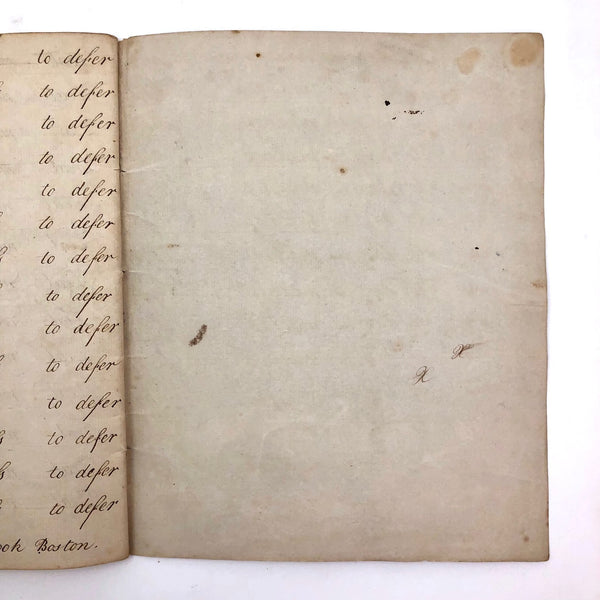 to defer
to defer
to defer
to defer
to defer
to defer
to defer
to defer
to defer
to defer
to defer
to defer
to defer
to defer
ook Boston.